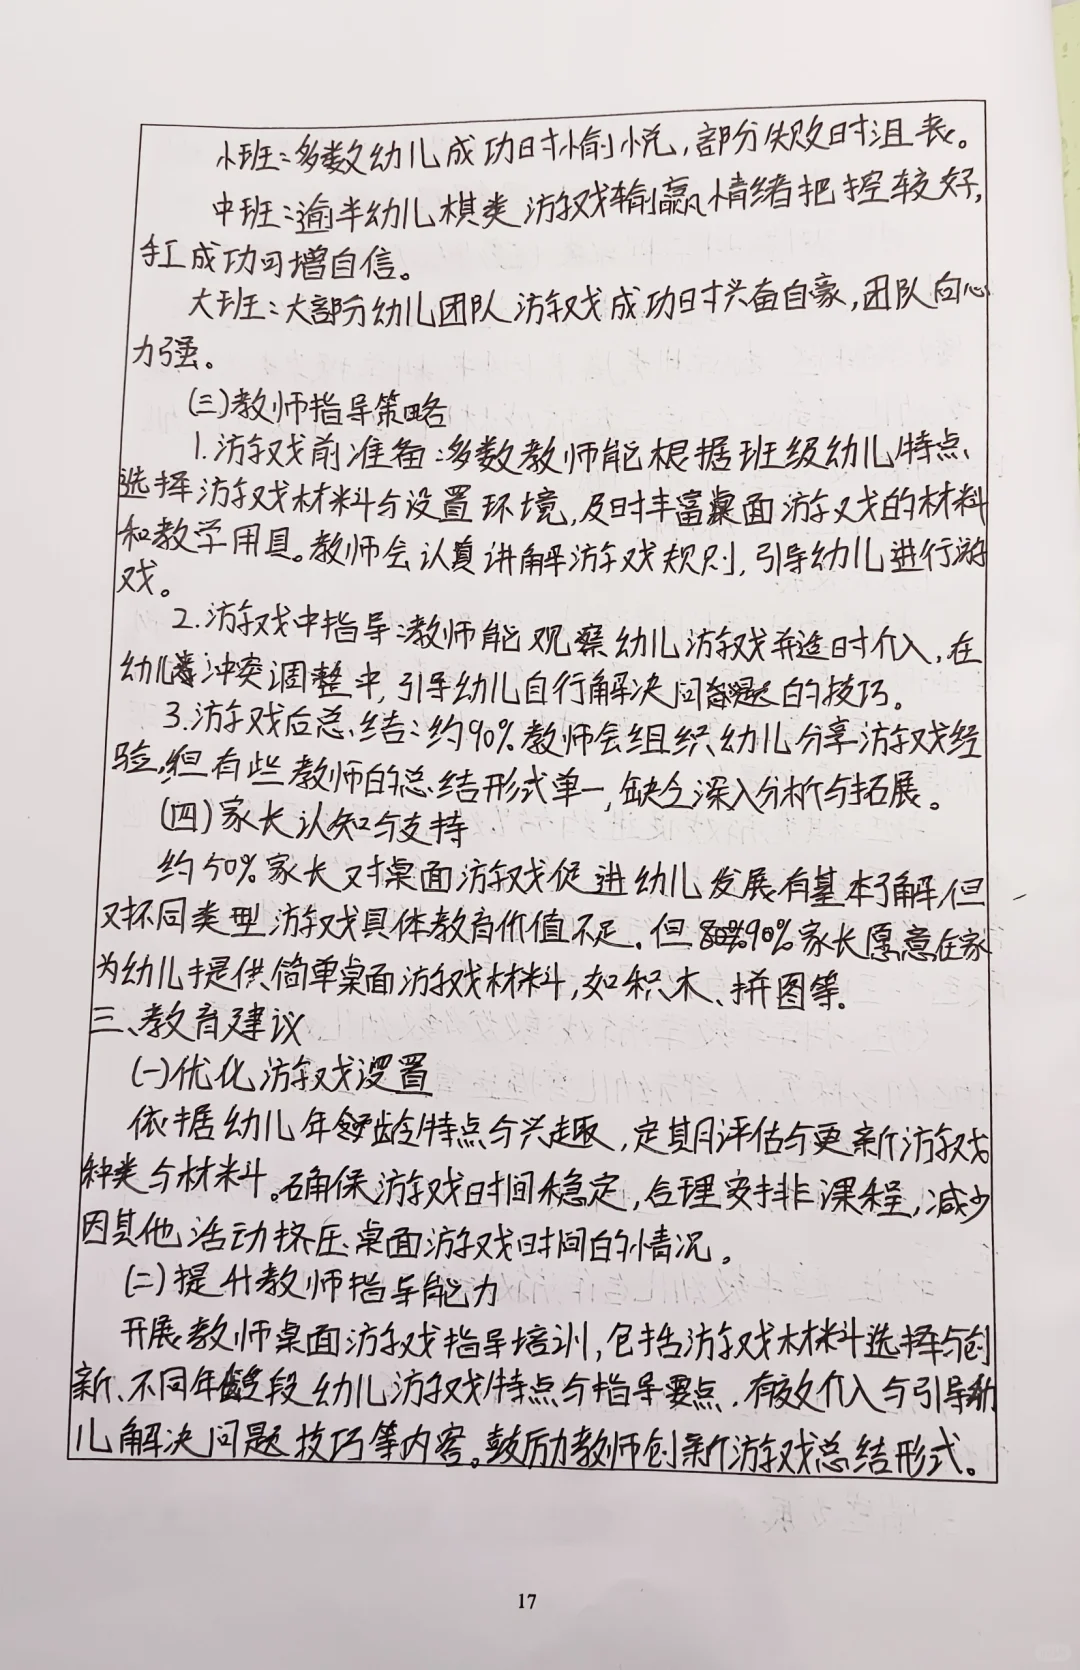 小班:多数幼儿成功时愉悦,部分失败时沮丧。
中班:逾半幼儿棋类游戏输赢情绪把控较好,
手工成功可增自信。
大班:大部分幼儿团队游戏成功时兴奋自豪,团队向心
力强。
(三)教师指导策略
1.游戏前准备:多数教师能根据班级幼儿特点、
选择游戏材料与设置环境,及时丰富桌面游戏的材料
和教学用具。教师会认真讲解游戏规则,引导幼儿进行游
戏。
2.游戏中指导:教师能观察幼儿游戏并适时介入,在
幼儿冲突调整中,引导幼儿自行解决问题的技巧。
3.游戏后总结:约90%教师会组织幼儿分享游戏经
验,但有些教师的总结形式单一,缺乏深入分析与拓展。
(四)家长认知与支持
约50%家长对桌面游戏促进幼儿发展有基本了解,但
对不同类型游戏具体教育价值不足。但90%家长愿意在家
为幼儿提供简单桌面游戏材料,如积木、拼图等。
三、教育建议
(一)优化游戏设置
依据幼儿年龄特点与兴趣,定期评估与更新游戏
种类与材料。确保游戏时间稳定,合理安排课程,减少
因其他活动挤压桌面游戏时间的情况。
(二)提升教师指导能力
开展教师桌面游戏指导培训,包括游戏材料选择与创
新、不同年龄段幼儿游戏特点与指导要点、有效介入与引导幼
儿解决问题技巧等内容。鼓励教师创新游戏总结形式。
17